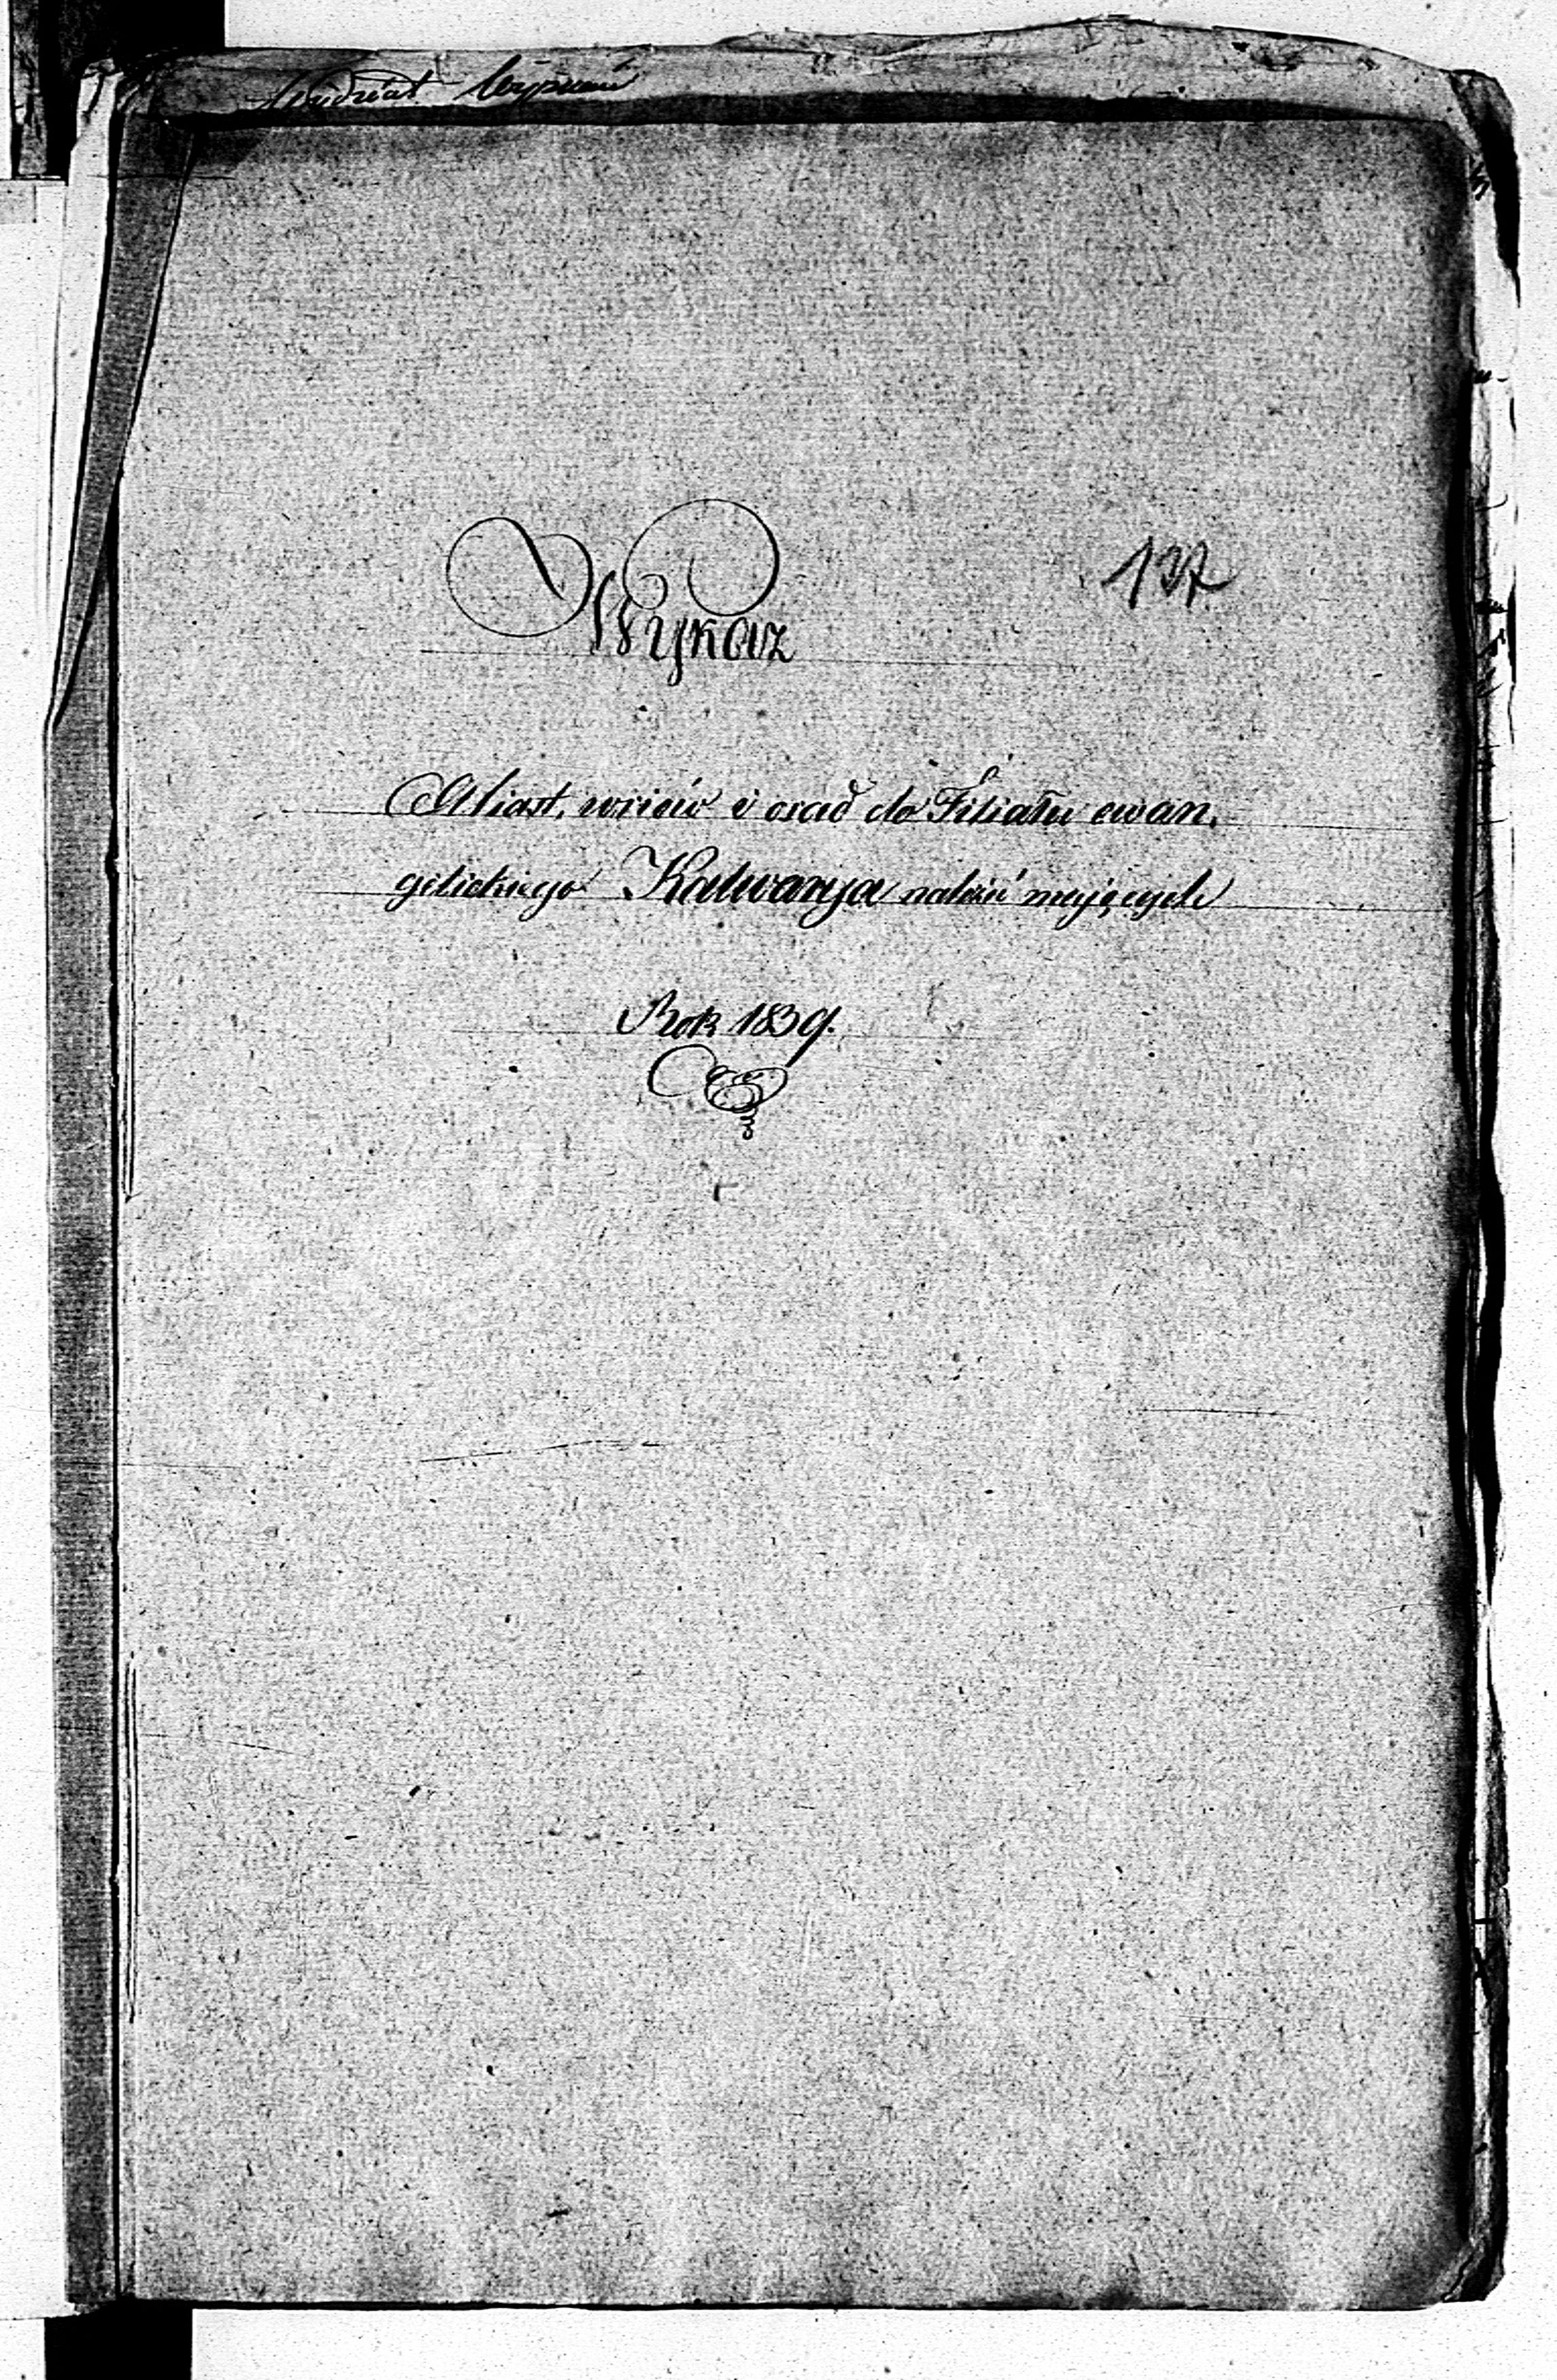 137
Wykaz
Miast, wsiów i osad do Filiału ewan,
gelickiego Kalwarya należeć mających
Rok 1839.